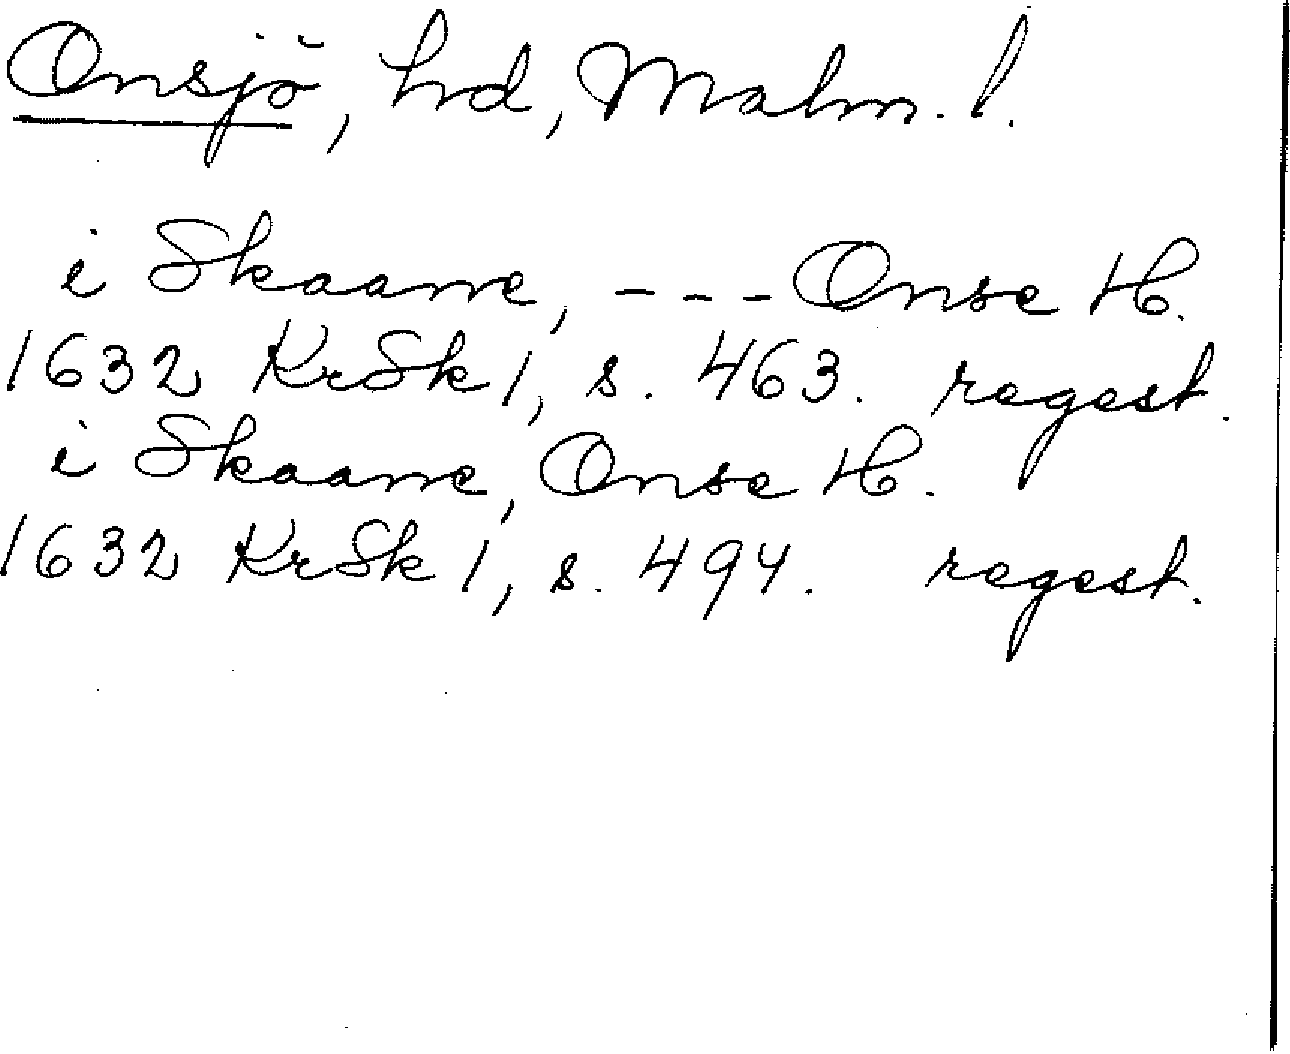 Onsjö, hrd, Malm. l.
i Skaane, --- Onse H.
1632 KrSk 1, s. 463. regest.
i Skaane, Onse H.
1632 KrSk 1, s. 494. regest.